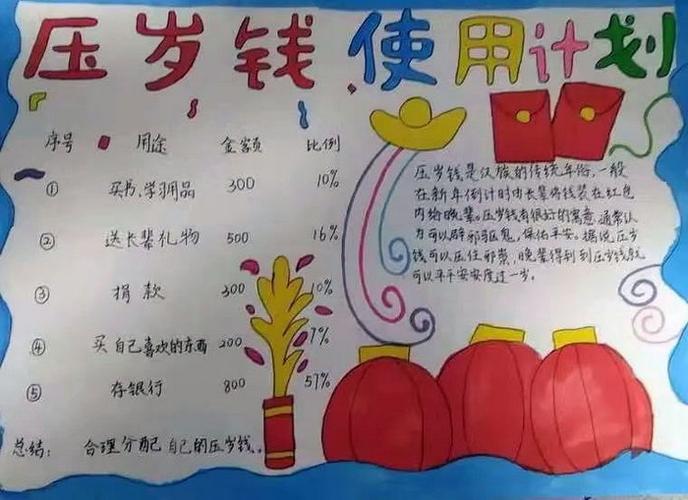 压岁钱使用计划
序号 用途 金额 比例
① 买书、学习用品 300 10%
② 送长辈礼物 500 16%
③ 捐款 300 10%
④ 买自己喜欢的东西 200 7%
⑤ 存银行 800 57%
总结：合理分配自己的压岁钱。
压岁钱是汉族的传统年俗，一般
在新年倒计时由长辈将钱装在红包
内给晚辈。压岁钱有很好的寓意，通常认
为可以辟邪驱鬼，保佑平安。据说压岁
钱可以压住邪祟，晚辈得到到压岁钱就
可以平平安安度过一岁。